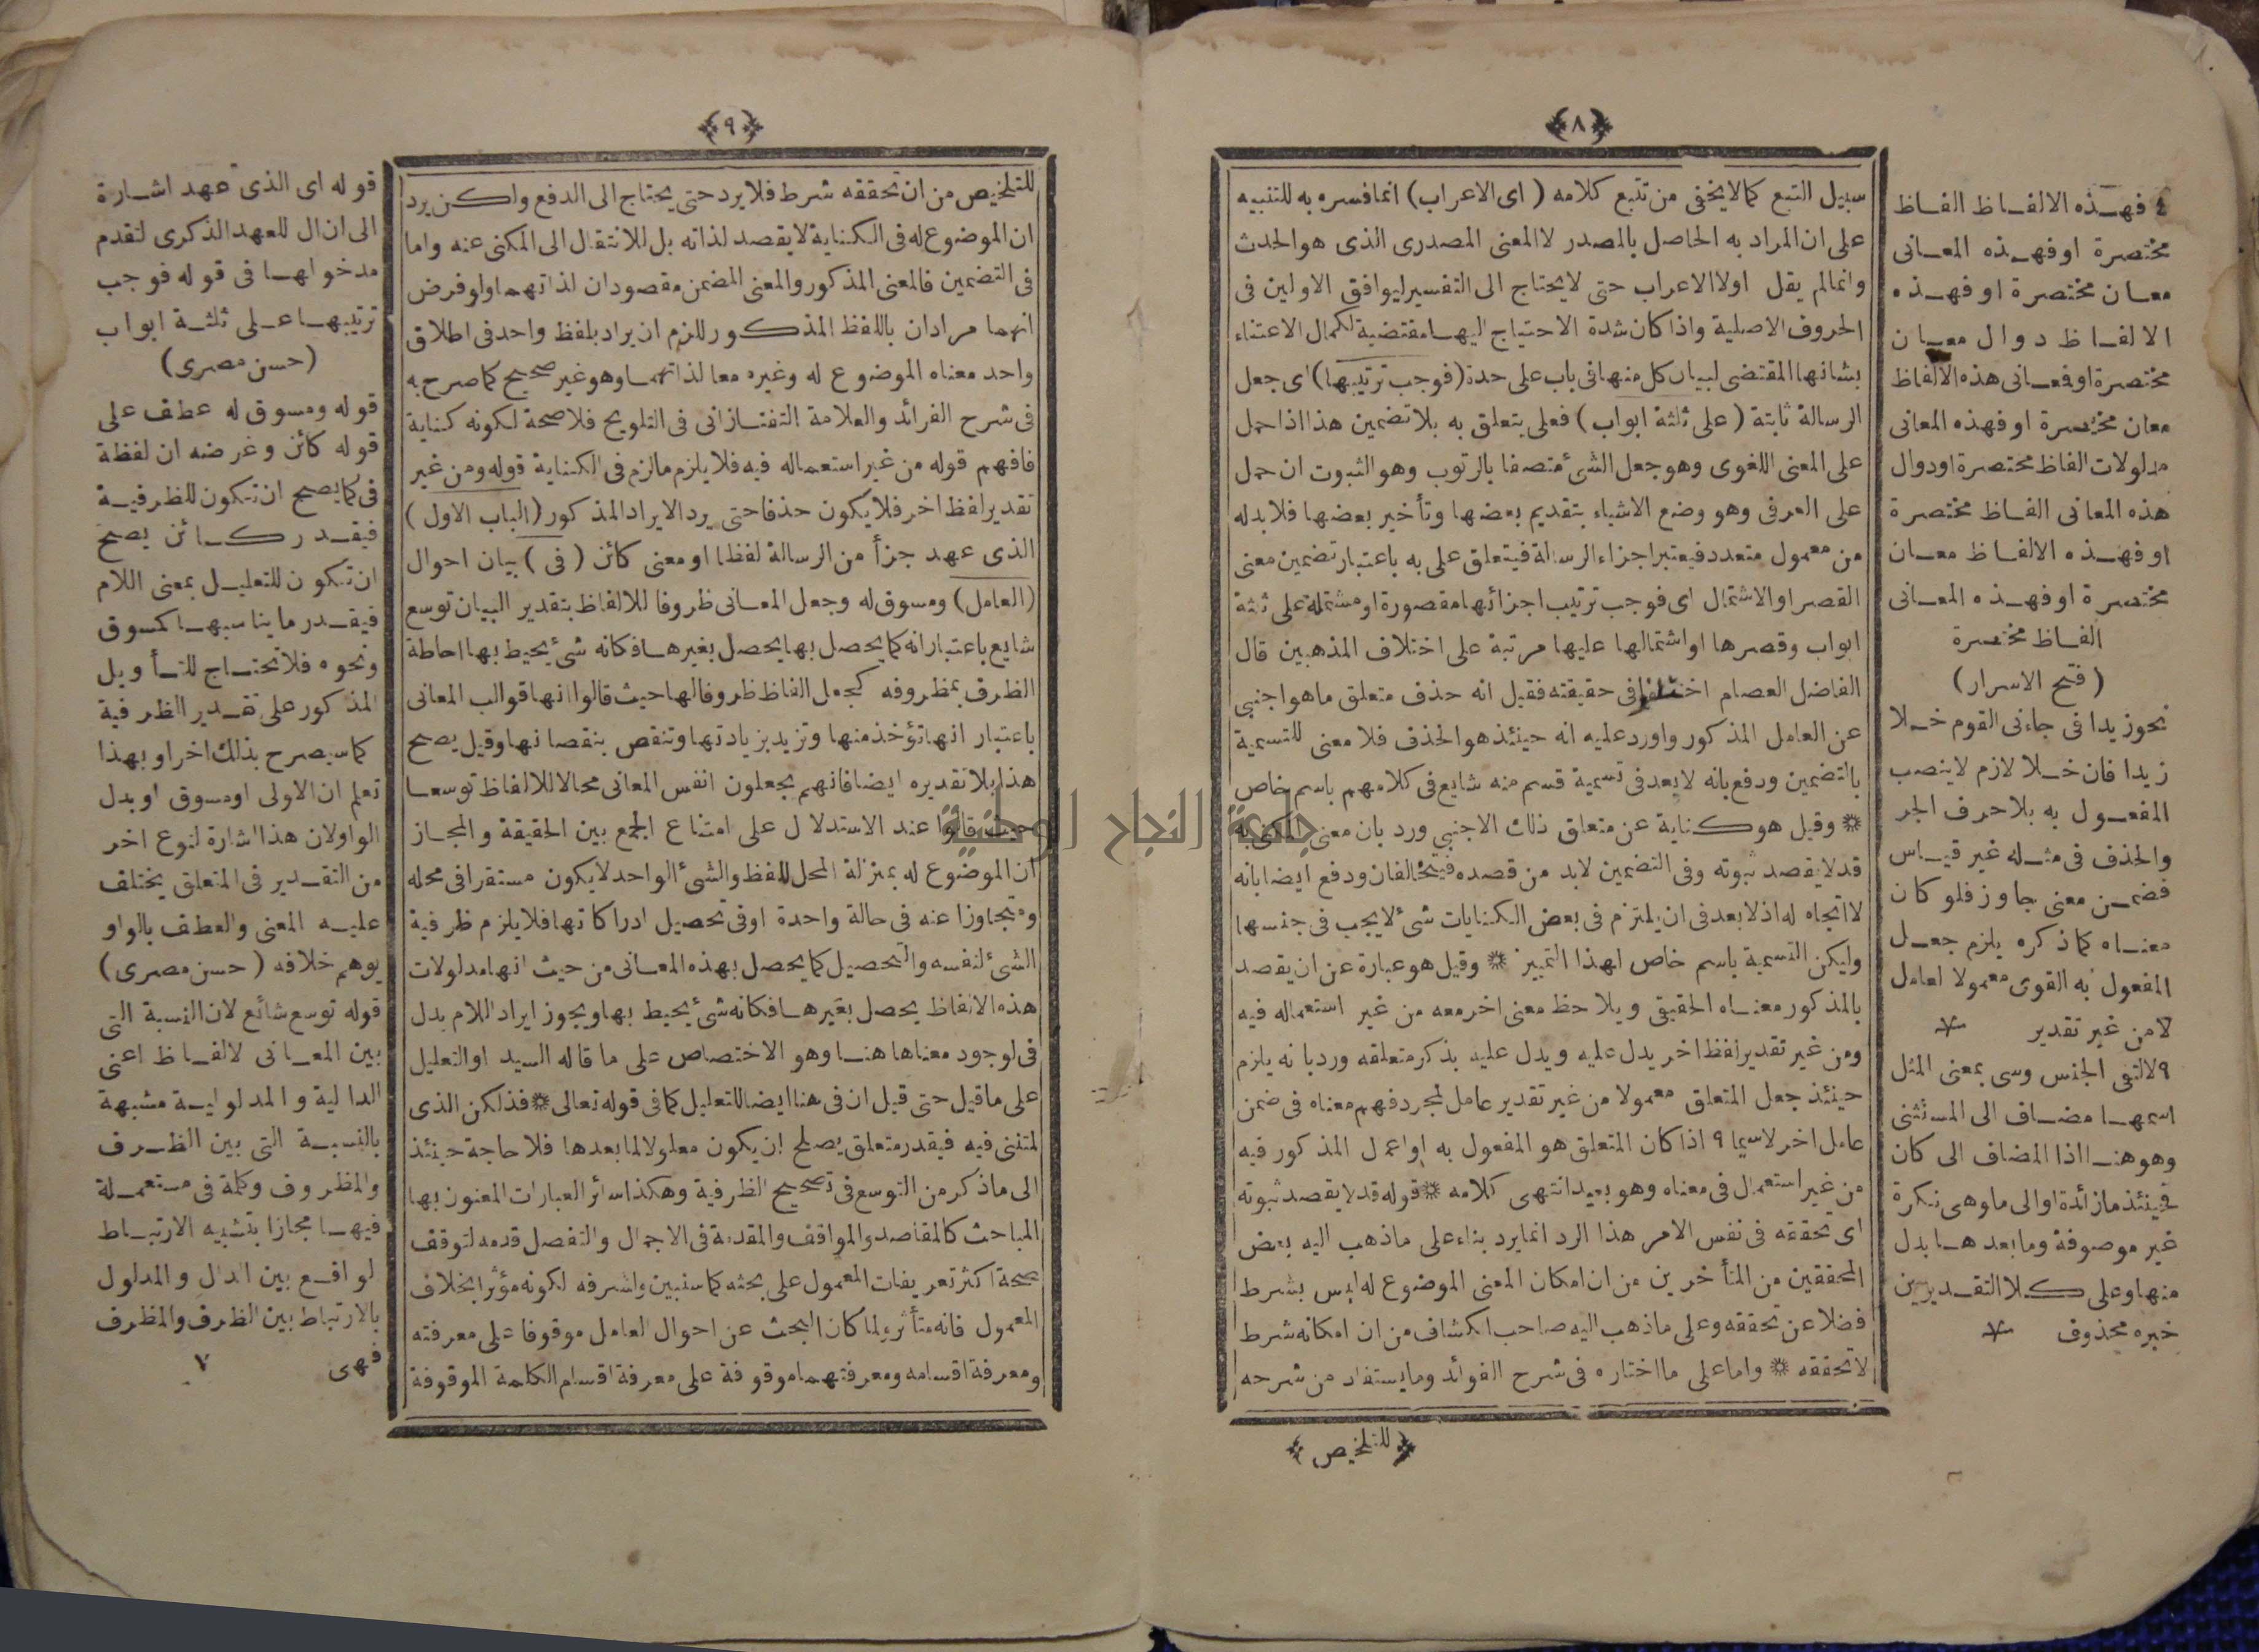 ﴿٨﴾
سبيل التبع كما لا يخفى من تتبع كلامه ( اى الاعراب ) انما فسره به للتنبيه
على ان المراد به الحاصل بالمصدر لا المعنى المصدرى الذى هو الحدث
وانما لم يقل اولا الاعراب حتى لا يحتاج الى التفسير ليوافق الاولين فى
الحروف الاصلية واذا كان شدة الاحتياج اليها مقتضية لكمال الاعتناء
بشانها المقتضى لبيان كل منها فى باب على حدة ( فوجب ترتيبها ) اى جعل
الرسالة ثابتة ( على ثلثة ابواب ) فعلى يتعلق به بلا تضمين هذا اذا حمل
على المعنى اللغوى وهو جعل الشئ متصفا بالرتوب وهو الثبوت ان حمل
على العرفى وهو وضع الاشياء بتقديم بعضها وتأخير بعضها فلا بد له
من معمول متعدد فيعتبر اجزاء الرسالة فيتعلق على به باعتبار تضمين معنى
القصر او الاشتمال اى فوجب ترتيب اجزائها مقصورة او مشتملة على ثلثة
ابواب وقصرها او اشتمالها عليها مرتبة على اختلاف المذهبين قال
الفاضل العصام اختلفوا فى حقيقته فقيل انه حذف متعلق ما هو اجنبى
عن العامل المذكور واورد عليه انه حينئذ هو الحذف فلا معنى للتسمية
بالتضمين ودفع بانه لا بعد فى تسمية قسم منه شايع فى كلامهم باسم خاص
❊ وقيل هو كناية عن متعلق ذلك الاجنبى ورد بان معنى المكنى به
قد لا يقصد ثبوته وفى التضمين لا بد من قصده فيتخالفان ودفع ايضا بانه
لا اتجاه له اذ لا بعد فى ان يلتزم فى بعض الكنايات شئ لا يجب فى جنسها
وليكن التسمية باسم خاص لهذا التمييز ❊ وقيل هو عبارة عن ان يقصد
بالمذكور معناه الحقيقى ويلاحظ معنى اخر معه من غير استعماله فيه
ومن غير تقدير لفظ اخر يدل عليه ويدل عليه بذكر متعلقه ورد بانه يلزم
حينئذ جعل المتعلق معمولا من غير تقدير عامل لمجرد فهم معناه فى ضمن
عامل اخر لا سيما ٩ اذا كان المتعلق هو المفعول به او اعمل المذكور فيه
من غير استعمال فى معناه وهو بعيد انتهى كلامه ❊ قوله قد لا يقصد ثبوته
اى تحققه فى نفس الامر هذا الرد انما يرد بناء على ما ذهب اليه بعض
المحققين من المتأخرين من ان امكان المعنى الموضوع له ليس بشرط
فضلا عن تحققه وعلى ما ذهب اليه صاحب الكشاف من ان امكانه شرط
لا تحققه ❊ واما على ما اختاره فى شرح الفوائد وما يستفاد من شرحه
﴿للتلخيص﴾
٤ فهذه الالفاظ الفاظ
مختصرة او فهذه المعانى
معان مختصرة او فهذه
الالفاظ دوال معان
مختصرة او فمعانى هذه الالفاظ
معان مختصرة او فهذه المعانى
مدلولات الفاظ مختصرة او دوال
هذه المعانى الفاظ مختصرة
او فهذه الالفاظ معان
مختصرة او فهذه المعانى
الفاظ مختصرة
( فتح الاسرار )
نحو زيدا فى جاءنى القوم خلا
زيدا فان خلا لازم لا ينصب
المفعول به بلا حرف الجر
والحذف فى مثله غير قياس
فضمن معنى جاوز فلو كان
معناه كما ذكره يلزم جعل
المفعول به القوى معمولا لعامل
لا من غير تقدير
٩ لا لنفى الجنس وسى بمعنى المثل
اسمها مضاف الى المستثنى
وهو هنا اذا المضاف الى كان
فحينئذ ما زائدة او الى ما وهى نكرة
غير موصوفة وما بعدها بدل
منها وعلى كلا التقديرين
خبره محذوف
﴿٩﴾
للتلخيص من ان تحققه شرط فلا يرد حتى يحتاج الى الدفع ولكن يرد
ان الموضوع له فى الكناية لا يقصد لذاته بل للانتقال الى المكنى عنه واما
فى التضمين فالمعنى المذكور والمعنى المضمن مقصودان لذاتهما ولو فرض
انهما مرادان باللفظ المذكور للزم ان يراد بلفظ واحد فى اطلاق
واحد معناه الموضوع له وغيره معا لذاتهما وهو غير صحيح كما صرح به
فى شرح الفرائد والعلامة التفتازانى فى التلويح فلا صحة لكونه كناية
فافهم قوله من غير استعماله فيه فلا يلزم ما لزم فى الكناية قوله ومن غير
تقدير لفظ اخر فلا يكون حذفا حتى يرد الايراد المذكور ( الباب الاول )
الذى عهد جزأ من الرسالة لفظا او معنى كائن ( فى ) بيان احوال
( العامل ) ومسوق له وجعل المعانى ظروفا للالفاظ بتقدير البيان توسع
شايع باعتبار انه كما يحصل بها يحصل بغيرها فكانه شئ يحيط بها احاطة
الظرف بمظروفه كجعل الفاظ ظروفا لها حيث قالوا انها قوالب المعانى
باعتبار انها تؤخذ منها وتزيد بزيادتها وتنقص بنقصانها وقيل يصح
هذا بلا تقديره ايضا فانهم يجعلون انفس المعانى محالا للالفاظ توسعا
حيث قالوا عند الاستدلال على امتناع الجمع بين الحقيقة والمجاز
ان الموضوع له بمنزلة المحل للفظ والشئ الواحد لا يكون مستقرا فى محله
ومتجاوزا عنه فى حالة واحدة او فى تحصيل ادراكاتها فلا يلزم ظرفية
الشئ لنفسه والتحصيل كما يحصل بهذه المعانى من حيث انها مدلولات
هذه الالفاظ يحصل بغيرها فكانه شئ يحيط بها ويجوز ايراد اللام بدل
فى لوجود معناها هنا وهو الاختصاص على ما قاله السيد او التعليل
على ما قيل حتى قيل ان فى هنا ايضا للتعليل كما فى قوله تعالى ❊ فذلكن الذى
لمتننى فيه فيقدر متعلق يصلح ان يكون معلولا لما بعدها فلا حاجة حينئذ
الى ما ذكر من التوسع فى تصحيح الظرفية وهكذا سائر العبارات المعنون بها
المباحث كالمقاصد والمواقف والمقدمة فى الاجمال والتفصل قدمه لتوقف
صحة اكثر تعريفات المعمول على بحثه كما سنبين واشرفه لكونه مؤثرا بخلاف
المعمول فانه متأثر ولما كان البحث عن احوال العامل موقوفا على معرفته
ومعرفة اقسامه ومعرفتهما موقوفة على معرفة اقسام الكلمة الموقوفة
قوله اى الذى عهد اشارة
الى ان ال للعهد الذكرى لتقدم
مدخولها فى قوله فوجب
ترتيبها على ثلثة ابواب
( حسن مصرى )
قوله ومسوق له عطف على
قوله كائن وغرضه ان لفظة
فى كما يصح ان تكون للظرفية
فيقدر كائن يصح
ان تكون للتعليل بمعنى اللام
فيقدر ما يناسبها كمسوق
ونحوه فلا تحتاج للتأويل
المذكور على تقدير الظرفية
كما سيصرح بذلك اخرا وبهذا
تعلم ان الاولى او مسوق او بدل
الواو لان هذا اشارة لنوع اخر
من التقدير فى المتعلق يختلف
عليه المعنى والعطف بالواو
يوهم خلافه ( حسن مصرى )
قوله توسع شائع لان النسبة التى
بين المعانى لالفاظ اعنى
الدالية والمدلولية مشبهة
بالنسبة التى بين الظرف
والمظروف وكلمة فى مستعملة
فيها مجازا بتشبيه الارتباط
لواقع بين الدال والمدلول
بالارتباط بين الظرف والمظرف
فهى ٧
جامعة النجاح الوطنية